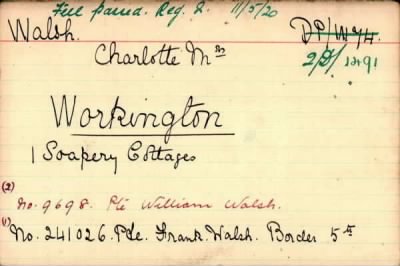 Full pama. Reg. 2. 11/5/20
Walsh.
DP/W74.
Charlotte Mrs
2/D/1291
Workington
1 Soapery Cottages
(2)
No. 9698. Pte William Walsh.
(1)
No. 241026. Pte. Frank. Walsh. Border 5th